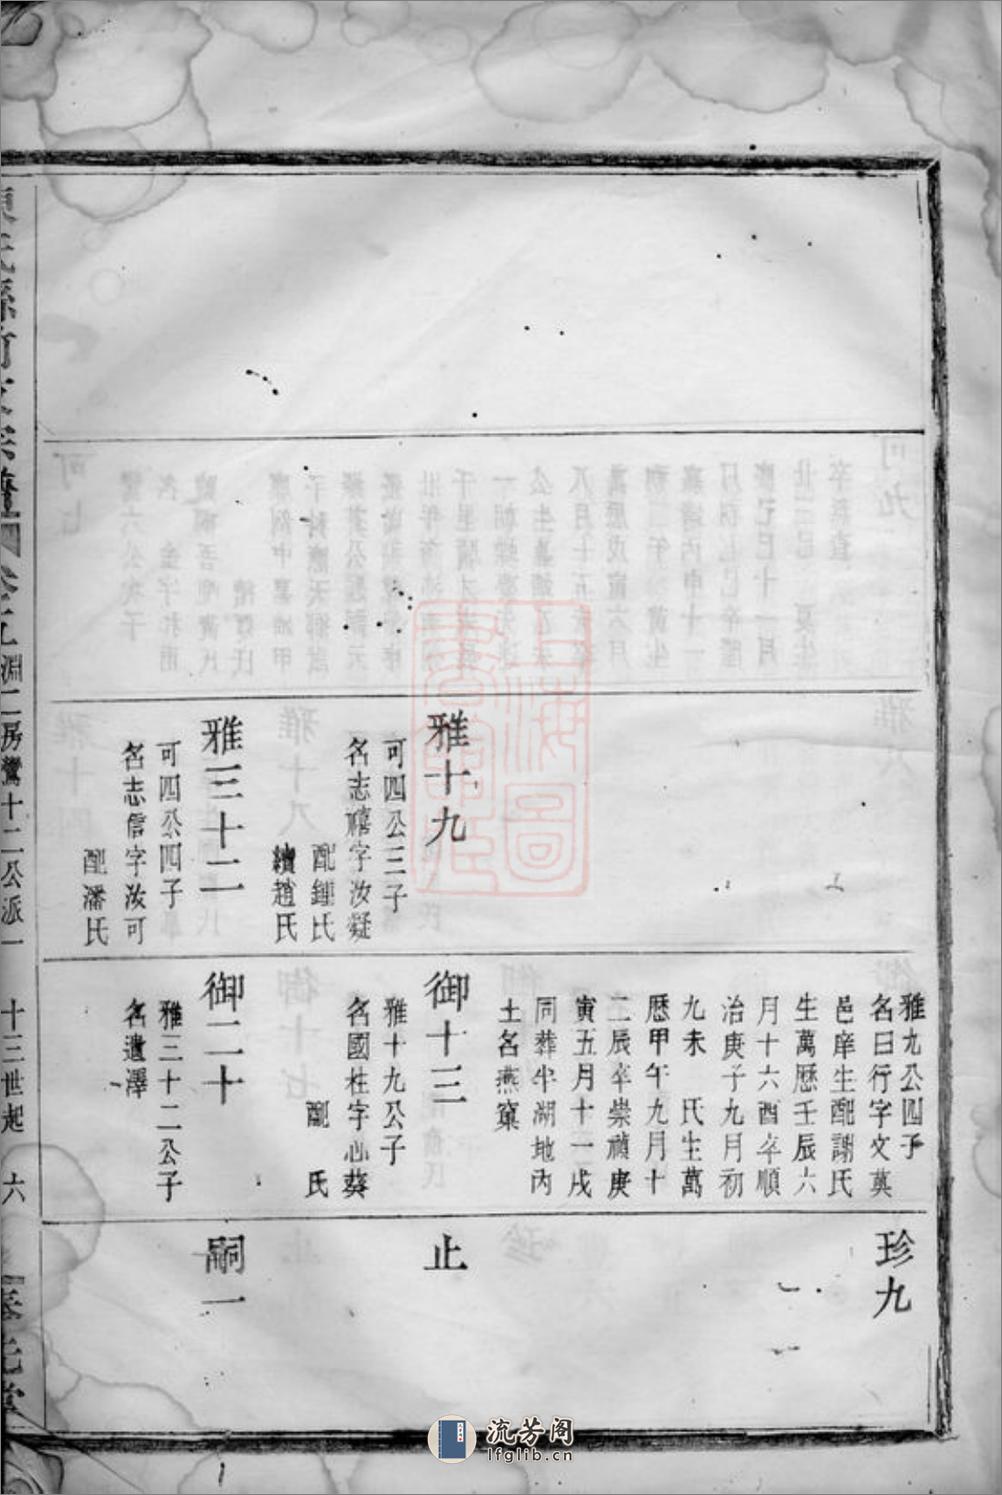 雅十九
可四公三子
名志禧字汝凝
配鍾氏
續趙氏
雅三十二
可四公四子
名志信字汝可
配潘氏
雅九公四子
名曰行字文蓂
邑庠生配謝氏
生萬歷壬辰六
月十六酉卒順
治庚子九月初
九未 氏生萬
歷甲午九月十
二辰卒崇禎庚
寅五月十一戌
同葬半湖地內
土名燕窠
御十三
雅十九公子
名國柱字心葵
配 氏
御二十
雅三十二公子
名遺澤
珍九
止
嗣一
淵二房鶯十二公派一
十三世起
六
流芳阁
lfglib.cn